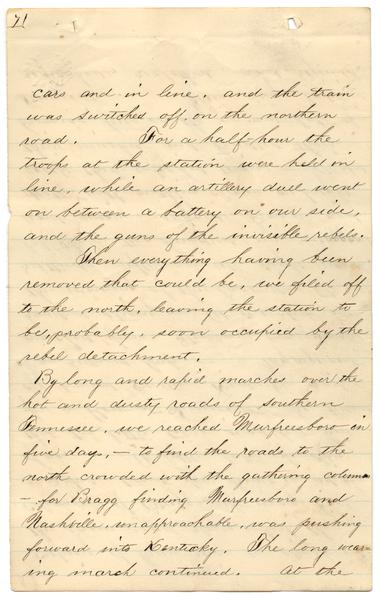 71
cars and in line, and the train
was switched off on the northern
road. For a half-hour the
troops at the station were held in
line, while an artillery duel went
on between a battery on our side,
and the guns of the invisible rebels.
Then everything having been
removed that could be, we filed off
to the north, leaving the station to
be, probably, soon occupied by the
rebel detachment.
By long and rapid marches over the
hot and dusty roads of southern
Tennessee, we reached Murfreesboro in
five days, – to find the roads to the
north crowded with the gathering columns
– for Bragg finding Murfresboro and
Nashville, unapproachable, was pushing
forward into Kentucky. The long wear-
ing march continued. At the